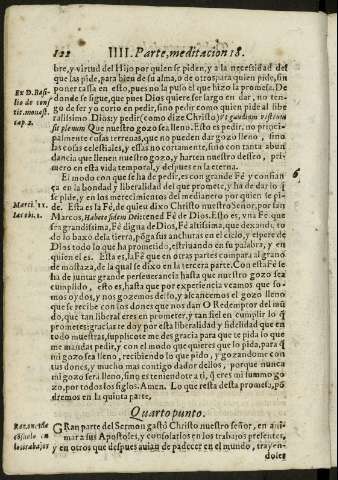 122 IIII. Parte, meditacion 18.
bre, y virtud del Hijo por quien se piden, y a la necesidad del
que las pide, para bien de su alma, o de otros para quien pide, sin
Ex D. Basi- poner tassa en esto, pues no la puso el que hizo la promesa. De
lio de cons donde se sigue, que pues Dios quiere ser largo en dar, no ten-
tit. monast. go de ser yo corto en pedir, sino pedir como quien pide al libe
cap. 2. ralissimo Dios: y pedir (como dize Christo) Vt gaudium vestrum
sit plenum Que nuestro gozo sea lleno. Esto es pedir, no princi-
palmente cosas terrenas, que no pueden dar gozo lleno, sino
las cosas celestiales, y essas no cortamente, sino con tanta abun
dancia que llenen nuestro gozo, y harten nuestro desseo, pri-
mero en esta vida temporal, y despues en la eterna.
El modo con que se ha de pedir, es con grande Fè y confian 6
ça en la bondad y liberalidad del que promete, y ha de dar lo q̃
se pide, y en los merecimientos del medianero por quien se pi-
Marci. 11. de. Esta es la Fè, de quiẽ dixo Christo nuestro Señor, por san
Iacobi. 1. Marcos, Habete fidem Dei: tened Fè de Dios. Esto es, vna Fè que
sea grandissima, Fè digna de Dios, Fè altissima, que dexando to
do lo baxo dela tierra, põga sus anchuras en el cielo, y espere de
Dios todo lo que ha prometido, estrivando en su palabra, y en
quien el es. Esta es, la Fè que en otras partes compara al grano
de mostaza, de la qual se dixo en la tercera parte. Con esta Fè se
ha de juntar grande perseverancia hasta que nuestro gozo sea
cumplido, esto es, hasta que por experiencia veamos que so-
mos oydos, y nos gozemos dello, y alcancemos el gozo lleno
que se recibe con los dones que nos dan O Redemptor del mũ
do, que tan liberal eres en prometer, y tan fiel en cumplir lo q̃
prometes: gracias te doy por esta liberalidad y fidelidad que en
todo muestras, suplicote me des gracia para que te pida lo que
me mandas pedir, y con el modo que quieres que lo pida, para q̃
mi gozo sea lleno, recibiendo lo que pido, y gozandome con
tus dones, y mucho mas contigo dador dellos, porque nunca
mi gozo serà lleno, sino es teniendote a ti, q̃ eres mi summo go-
zo, por todos los siglos. Amen. Lo que resta desta promesa, põ
dremos en la quinta parte.
Quarto punto.
GRan parte del Sermon gastò Christo nuestro señor, en ani-
mar a sus Apostoles, y consolarlos en los trabajos presentes,
los trabajos y en otros que despues avian de padecer en el mundo, trayen-
doles